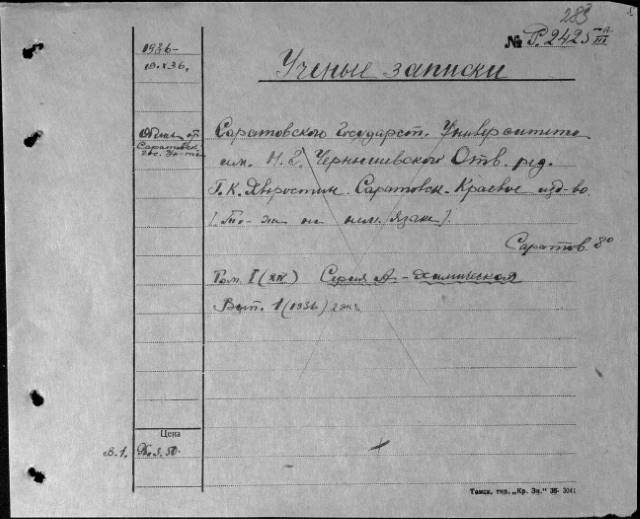 283
№ Р.2425 III
1936-
19.X.36.
Ученые записки
Обмен от
Саратовск.
гос. Ун-та
Саратовского Государст. Университета
им. Н. Г. Чернышевского Отв. ред.
Г. К. Хворостин. Саратовск. Краевое изд-во
[То-же на нем. языке].
Саратов 8°
Том. I (XIV) Серия А - химическая
Вып. 1 (1936) 2 экз
Цена
В.1.
5.50
Томск, тип. „Кр. Зн." 36- 3041